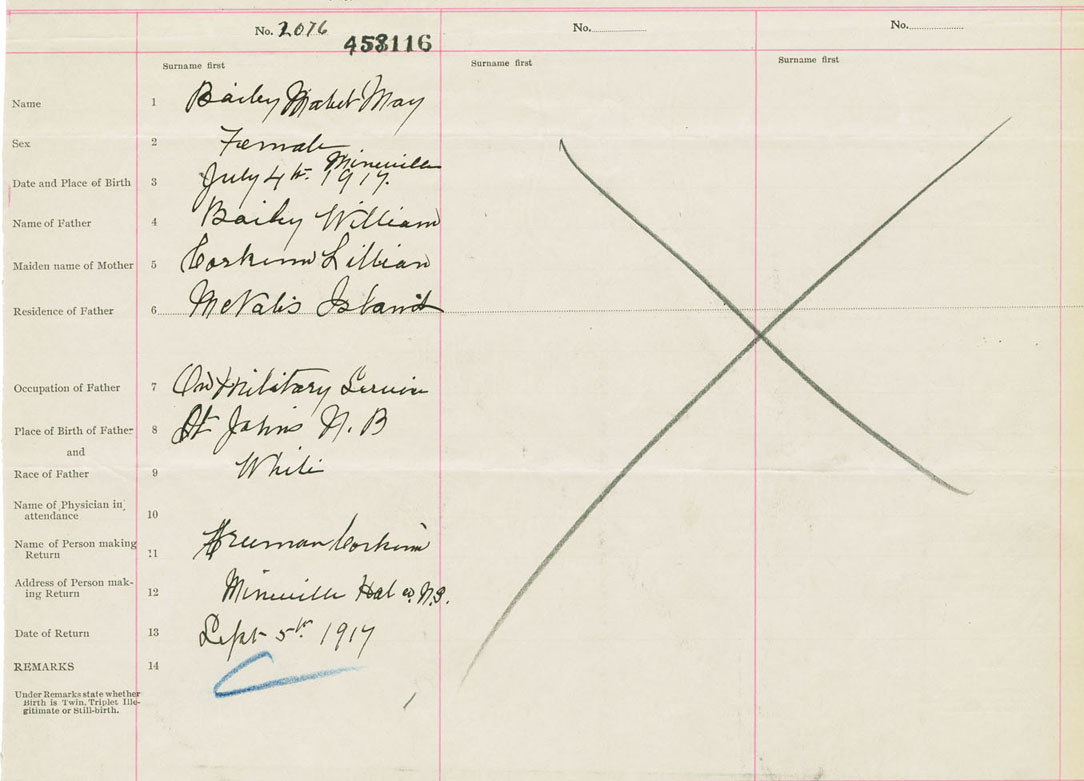 No. 2076 No. No.
458116
Surname first Surname first Surname first
Name 1 Bailey Mabel May
Sex 2 Female
Mineville
Date and Place of Birth 3 July 4th. 1917.
Name of Father 4 Bailey William
Maiden name of Mother 5 Corkum Lillian
Residence of Father 6 McNabs Island
Occupation of Father 7 On Military Service
Place of Birth of Father 8 St Johns N.B
and
Race of Father 9 White
Name of Physician in
attendance 10
Name of Person making
Return 11 Freeman Corkum
Address of Person mak-
ing Return 12 Mineville Hal co. N.S.
Date of Return 13 Sept 5th. 1917
REMARKS 14
Under Remarks state whether
Birth is Twin, Triplet Ille-
gitimate or Still-birth.